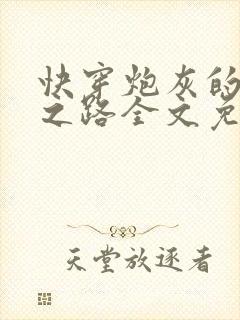 快穿炮灰的
之路全文免
天堂放逐者